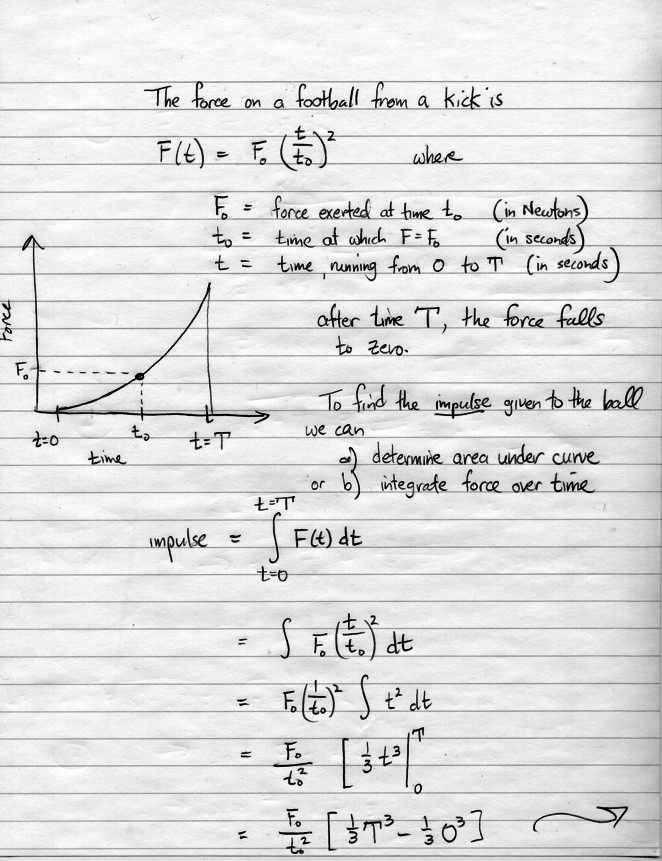 The force on a football from a kick is
F(t) = F₀ (t/t₀)² where
F₀ = force exerted at time t₀ (in Newtons)
t₀ = time at which F=F₀ (in seconds)
t = time, running from 0 to T (in seconds)
Force
F₀
t=0 t₀ t=T
time
after time T, the force falls
to zero.
To find the impulse given to the ball
we can
a) determine area under curve
or b) integrate force over time
impulse = ∫_{t=0}^{t=T} F(t) dt
= ∫ F₀ (t/t₀)² dt
= F₀ (1/t₀)² ∫ t² dt
= F₀/t₀² [ 1/3 t³ |₀ᵀ
= F₀/t₀² [ 1/3 T³ - 1/3 0³ ]